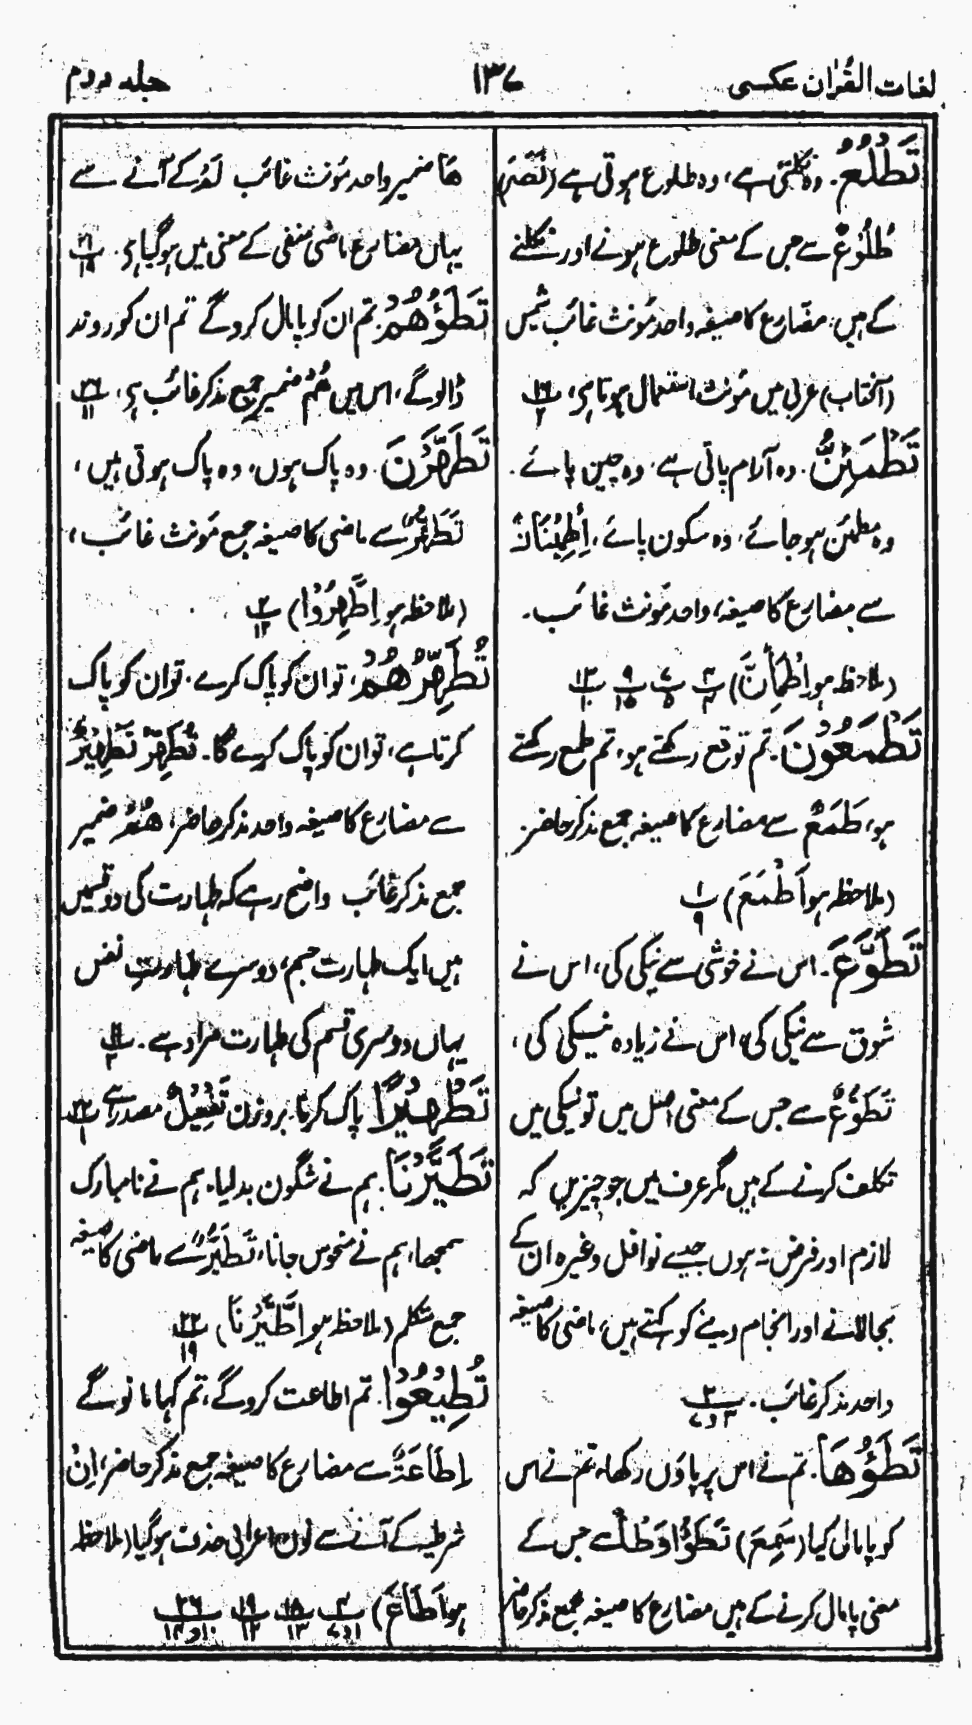 لغات القرآن عکسی
۱۳۷
جلد دوم
تَطْلُعُ. وہ نکلتی ہے، وہ طلوع ہوتی ہے (نَصَرَ)
طُلُوْعٌ سے جس کے معنی طلوع ہونے اور نکلنے
کے ہیں۔ مضارع کا صیغہ واحد مؤنث غائب شمس
(آفتاب) عربی میں مؤنث استعمال ہوتا ہے،
تَطْمَئِنُّ. وہ آرام پاتی ہے، وہ چین پائے۔
وہ مطمئن ہو جائے، وہ سکون پائے، اِطْمِئْنَانٌ
سے مضارع کا صیغہ، واحد مؤنث غائب۔
(ملاحظہ ہو اِطْمَاَنَّ)
تَطْمَعُوْنَ. تم توقع رکھتے ہو، تم طمع رکھتے
ہو، طَمَعٌ سے مضارع کا صیغہ جمع مذکر حاضر۔
(ملاحظہ ہو اَطْمَعَ) پ ۱ / ۹
تَطَوَّعَ. اس نے خوشی سے نیکی کی، اس نے
شوق سے نیکی کی، اس نے زیادہ نیکی کی،
تَطَوُّعٌ سے جس کے معنی اصل میں تو نیکی میں
تکلف کرنے کے ہیں مگر عرف میں جو چیزیں کہ
لازم اور فرض نہ ہوں جیسے نوافل وغیرہ ان کے
بجا لانے اور انجام دینے کو کہتے ہیں، ماضی کا صیغہ
واحد مذکر غائب۔ پ ۲ / ۳ و ۷
تَطَؤُهَا. تم نے اس پر پاؤں رکھا، تم نے اس
کو پامال کیا (سَمِعَ) تَطَؤُا وَطْأٌ سے جس کے
معنی پامال کرنے کے ہیں مضارع کا صیغہ جمع مذکر حاضر
ھَا ضمیر واحد مؤنث غائب لَمْ کے آنے سے
یہاں مضارع ماضی منفی کے معنی میں ہو گیا ہے۔ پ ۲۱ / ۱۹
تَطَؤُهُمْ. تم ان کو پامال کرو گے تم ان کو روند
ڈالو گے، اس میں هُمْ ضمیر جمع مذکر غائب ہے، پ ۲۶ / ۱۱
تَطَهَّرْنَ. وہ پاک ہوں، وہ پاک ہوتی ہیں،
تَطَهُّرٌ سے ماضی کا صیغہ جمع مؤنث غائب،
(ملاحظہ ہو اِطَّهِّرُوْا) پ ۲ / ۱۲
تُطَهِّرُهُمْ. تو ان کو پاک کرے، تو ان کو پاک
کرتا ہے، تو ان کو پاک کرے گا۔ تُطَهِّرُ تَطْهِيْرٌ
سے مضارع کا صیغہ واحد مذکر حاضر، هُمْ ضمیر
جمع مذکر غائب واضح رہے کہ طہارت کی دو قسمیں
ہیں ایک طہارت جسم، دوسرے طہارتِ نفس
یہاں دوسری قسم کی طہارت مراد ہے۔ پ ۱۱ / ۲
تَطْهِيْرًا پاک کرنا۔ بروزن تَفْعِيْلٌ مصدر ہے پ ۲۲ / ۱
تَطَيَّرْنَا. ہم نے شگون بد لیا، ہم نے نامبارک
سمجھا، ہم نے منحوس جانا، تَطَيُّرٌ سے ماضی کا صیغہ
جمع متکلم (ملاحظہ ہو اِطَّيَّرْنَا) پ ۲۲ / ۱۹
تُطِيْعُوْا. تم اطاعت کرو گے، تم کہا مانو گے
اِطَاعَةٌ سے مضارع کا صیغہ جمع مذکر حاضر، اِنْ
شرطیہ کے آنے سے نون اعرابی حذف ہو گیا (ملاحظہ
ہو اَطَاعَ)